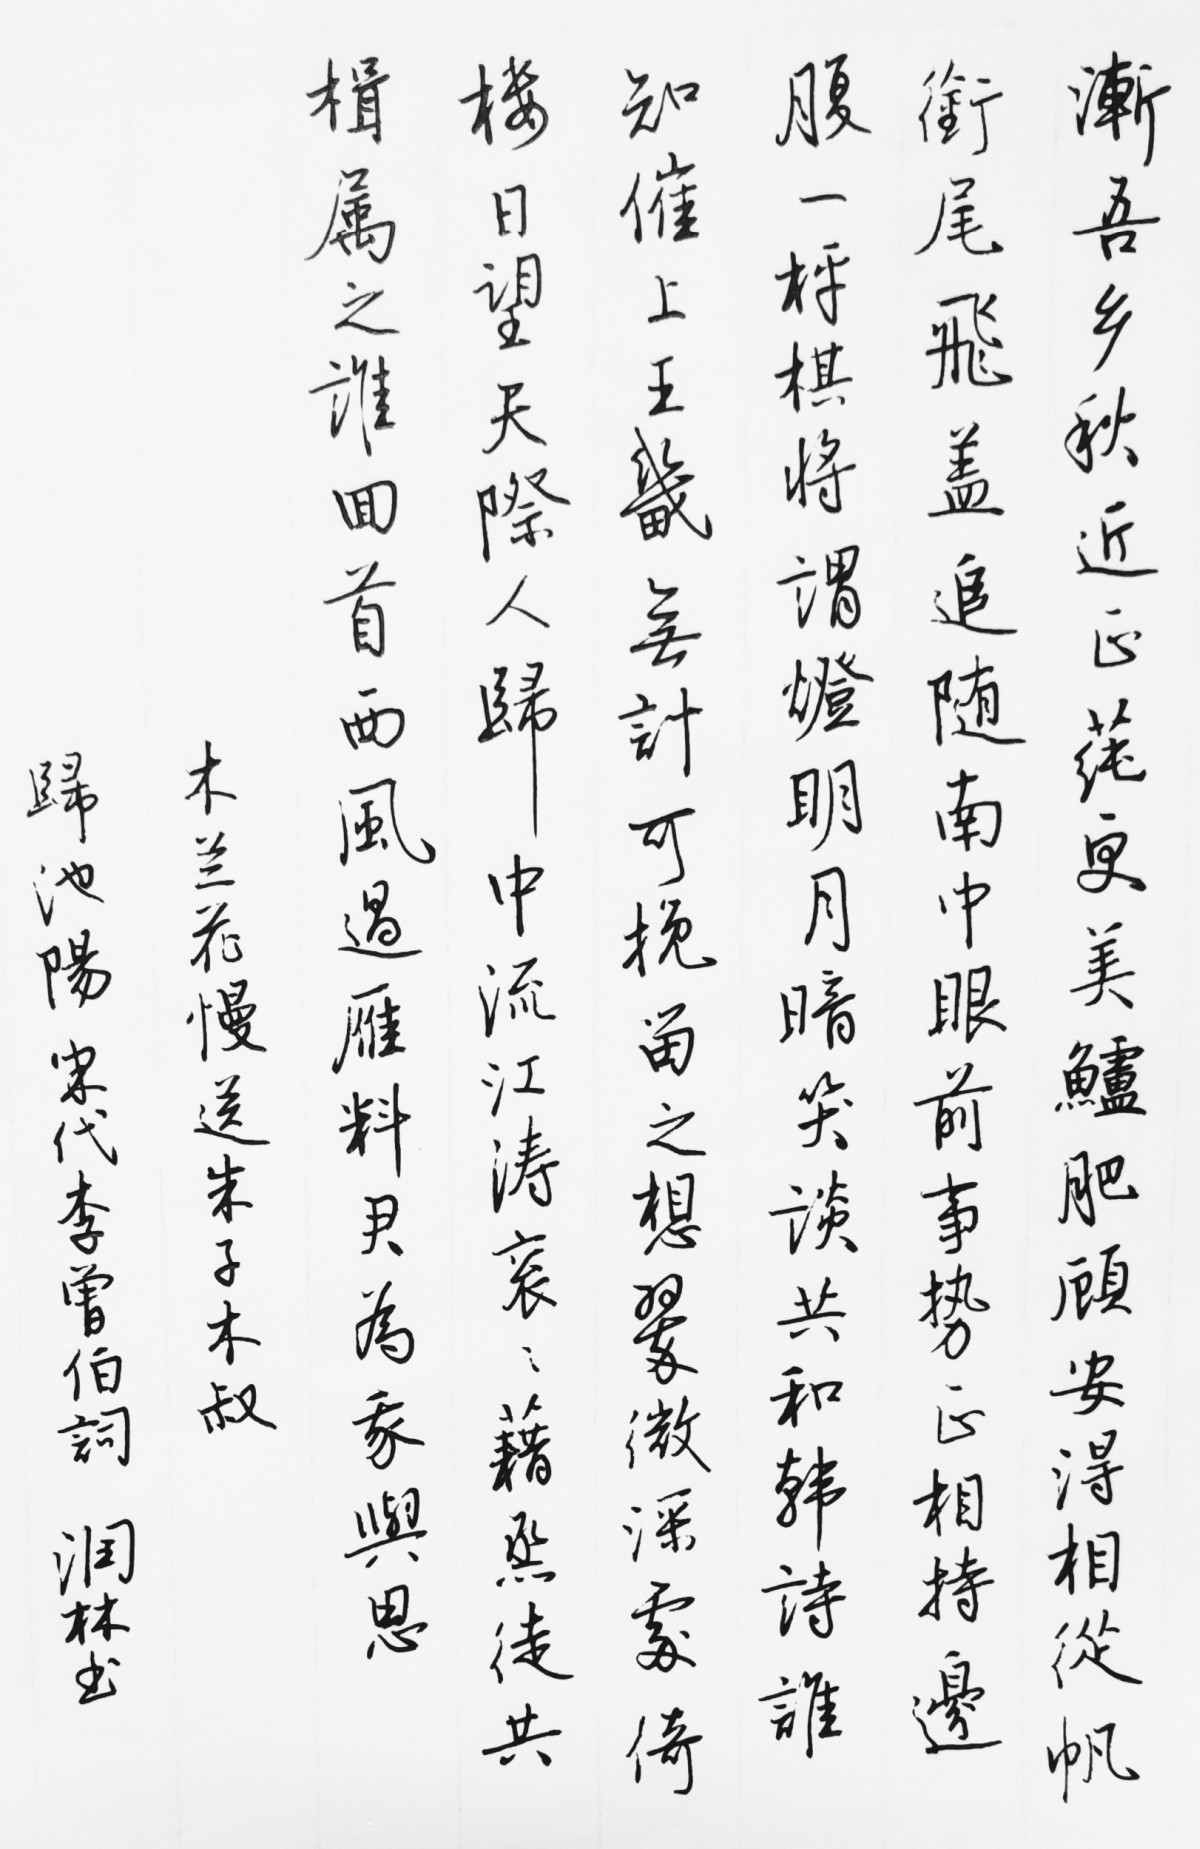 漸吾乡秋近正蒓更美鱸肥顾安得相從帆
銜尾飛盖追随南中眼前事势正相持邊
腹一枰棋将謂燈明月暗笑談共和韩詩誰
知催上王畿無計可挽留之想翠微深處倚
楼日望天際人歸中流江涛衮〻藉烝徒共
楫属之誰回首西風過雁料尹為豕與思
木兰花慢送朱子木叔
歸池陽宋代李曾伯詞 润林书